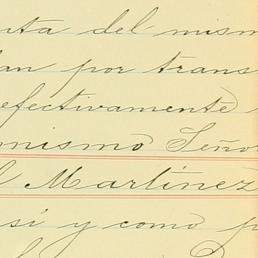 nta del mism
an por trans
efectivamente
nismo Señor
l Martinez
si y como p